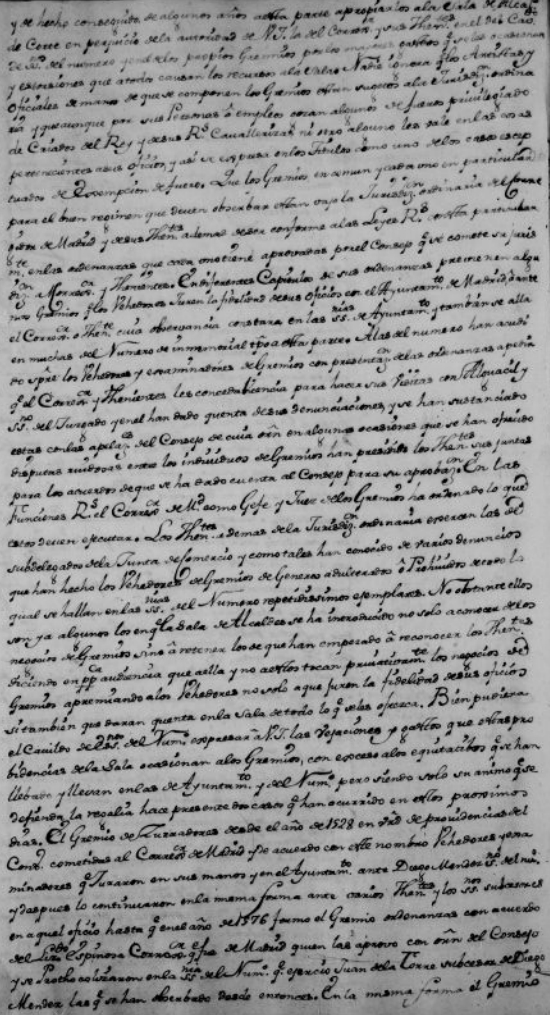 y de hecho conseguido de algunos años a esta parte apropiarlos a la Sala de Alcaldes
de Corte en perjuicio de la autoridad de V.S. la del Corregor. y sus Thenes. en el del Cavo.
de SSnos. del numero y en el de los propios Gremios por los mayores gastos qe. se les ocasionan
y extorsiones que a todos causan los recursos a la Sala. Nadie ignora qe. los Artistas y
Oficiales de manos de que se componen los Gremios estan sugetos a la Jurisdizn. ordina
ria y que aunque por sus Personas o empleos gozan algunos de fuero privilegiado
de Criados del Rey y de sus Rs. Cavallerizas ni otro alguno les vale en las cosas
pertenecientes a sus oficios y asi se expresa en los Titulos como uno de los casos excep
tuados de Exempcion de fuero. Que los Gremios en comun y cada uno en particular
para el buen regimen que deven observar estan vajo la Jurisdizn. ordinaria del Corre
gidor de Madrid y de sus Thenes. ademas de ser conforme a las Leyes Rs. consta particular
mte. en las ordenanzas que cada uno tiene aprovadas por el Consejo qe. se comete su juris
dizn. a Corregor. y Thenientes. En diferentes Capitulos de sus ordenanzas previenen algu
nos Gremios qe. los Vehedores Juren la fidelidad de sus Oficios en el Ayuntamto. de Madrid, ó ante
el Corregor. o Thente. cuia observancia constara en las SSnias. de Ayuntamto. y tambien se alla
en muchas del Numero de inmemorial tpo. a esta parte. A las del numero han acudi
do spre. los Vehedores y examinadores de Gremios con presentazn. de las ordenanzas a pedir
qe. el Corregor. y Thenientes les conceda licencia para hacer sus visitas con Alguacil y
SSno. del Juzgado y en el han dado quenta de sus denunciaciones, y se han sustanciado
estas con las apelazs. del Consejo de cuia orn. en algunas ocasiones que se han ofrecido
disputas ruidosas entre los individuos de Gremios han presidido los Thentes. sus juntas
para los acuerdos de que se ha dado cuenta al Consejo para su aprobazon. En las
Funciones Rs. el Corregor. de Md. como Gefe y Juez de los Gremios ha ordenado lo que
estos deven ejecutar. Los Thentes. ademas de la Jurisdizn. ordinaria ejercen las de
subdelegados de la Junta de Comercio y como tales han conocido de varios denuncios
que han hecho los Vehedores de Gremios de Generos adulterados ó Prohividos de todo lo
qual se hallan en las SSnias. del Numero repetidissimos ejemplares. No obstante ellos
son ya algunos los en qe. la Sala de Alcaldes se ha introducido no solo a conocer de los
negocios de Gremios sino a retener los de que han empezado a reconocer los Thentes.
diciendo en ppca. audiencia que a ella y no a estos tocan privativamte. los negocios de
Gremios apremiando a los Vehedores no solo a que juren la fidelidad de sus oficios
si tambien que daran quenta en la Sala de todo lo qe. se les ofrezca. Bien pudiera
el Cavildo de SSnos. del Numo. expresar a V.S. las vejaciones y gastos que estas pro
bidencias de la Sala ocasionan a los Gremios, con exceso a los equitatibos qe. se han
llebado y llevan en las de Ayuntamto. y del Numo. pero siendo solo su animo qe. se
defienda la regalia hace presente dos casos qe. han ocurrido en estos proximos
dias. El Gremio de Zurradores desde el año de 1528 en vrd. de providencias del
Consº. cometidas al Corregor. de Madrid y de acuerdo con este nombro Vehedores y exa
minadores qe. Juraron en sus manos y en el Ayuntamto. ante Diego Mendez SSno. del numº.
y despues lo continuaron en la mesma forma ante varios Thentes. y los SSnos. subcesores
en aquel oficio hasta qe. en el año de 1576 formo el Gremio ordenanzas con acuerdo
del Lizdo. Espinosa Corregor. qe. fue de Madrid quien las aprovo con orn. del Consejo
y se Protocolizaron en la SSnia. de la Numª. qe. ejercio Juan de la Torre subcesor de Diego
Mendez las qe. se han obserbado desde entonces. En la mesma forma el Gremio